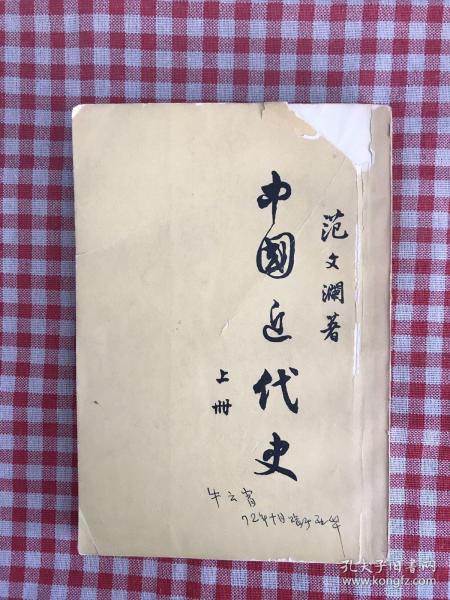 范文澜著
中國近代史
上册
牛云霄
72年十月
孔夫子旧书网
www.kongfz.com